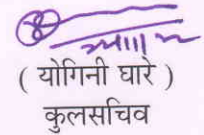 ( योगिनी घारे )
कुलसचिव